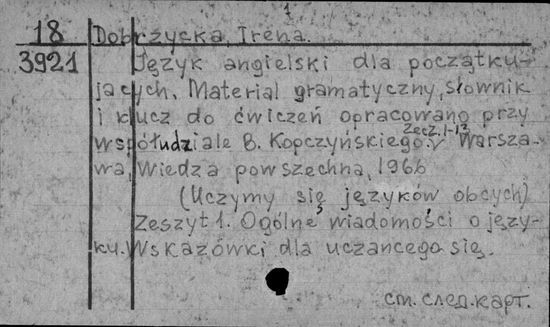 1
18 Dobrzycka, Irena.
3921 Język angielski dla początku-
jących. Material gramatyczny, słownik
i klucz do ćwiczeń opracowano przy
współudziale B. Kopczyńskiego. Zesz. 1-13 Warsza-
wa, Wiedza powszechna, 1966
(Uczymy się języków obcych)
Zeszyt 1. Ogólne wiadomości o języ-
ku. Wskazówki dla uczancego się.
см. след. карт.